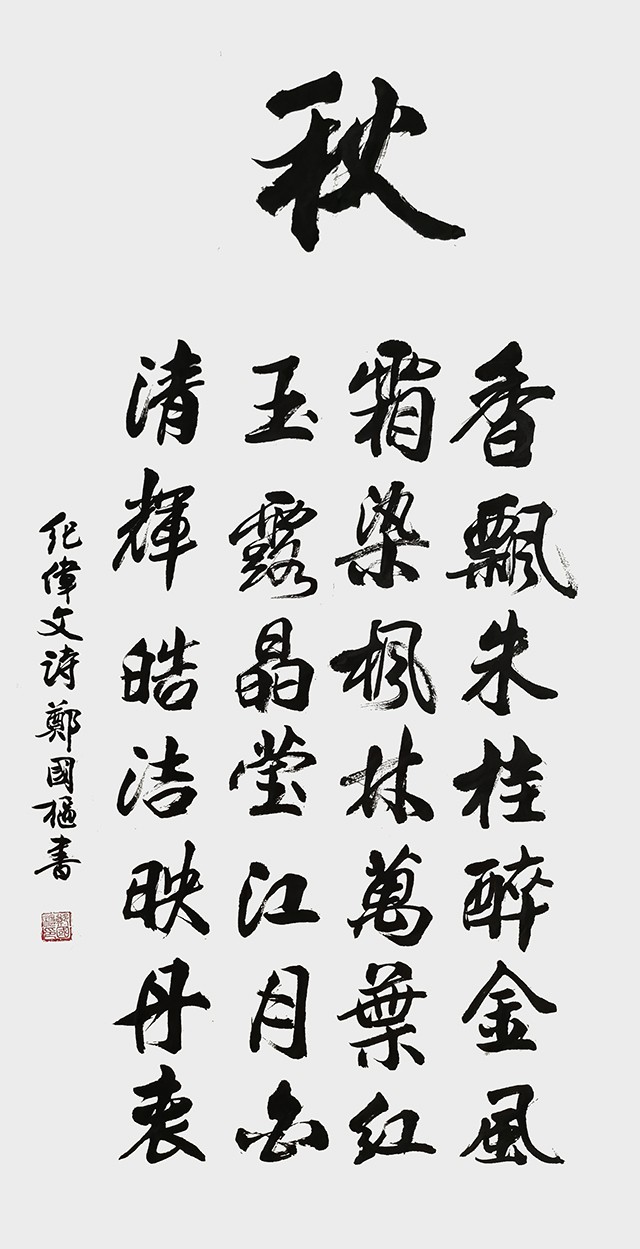 秋
香飄朱桂醉金風
霜染楓林萬葉紅
玉露晶瑩江月白
清輝皓洁映丹衷
纪偉文诗鄭國樞書